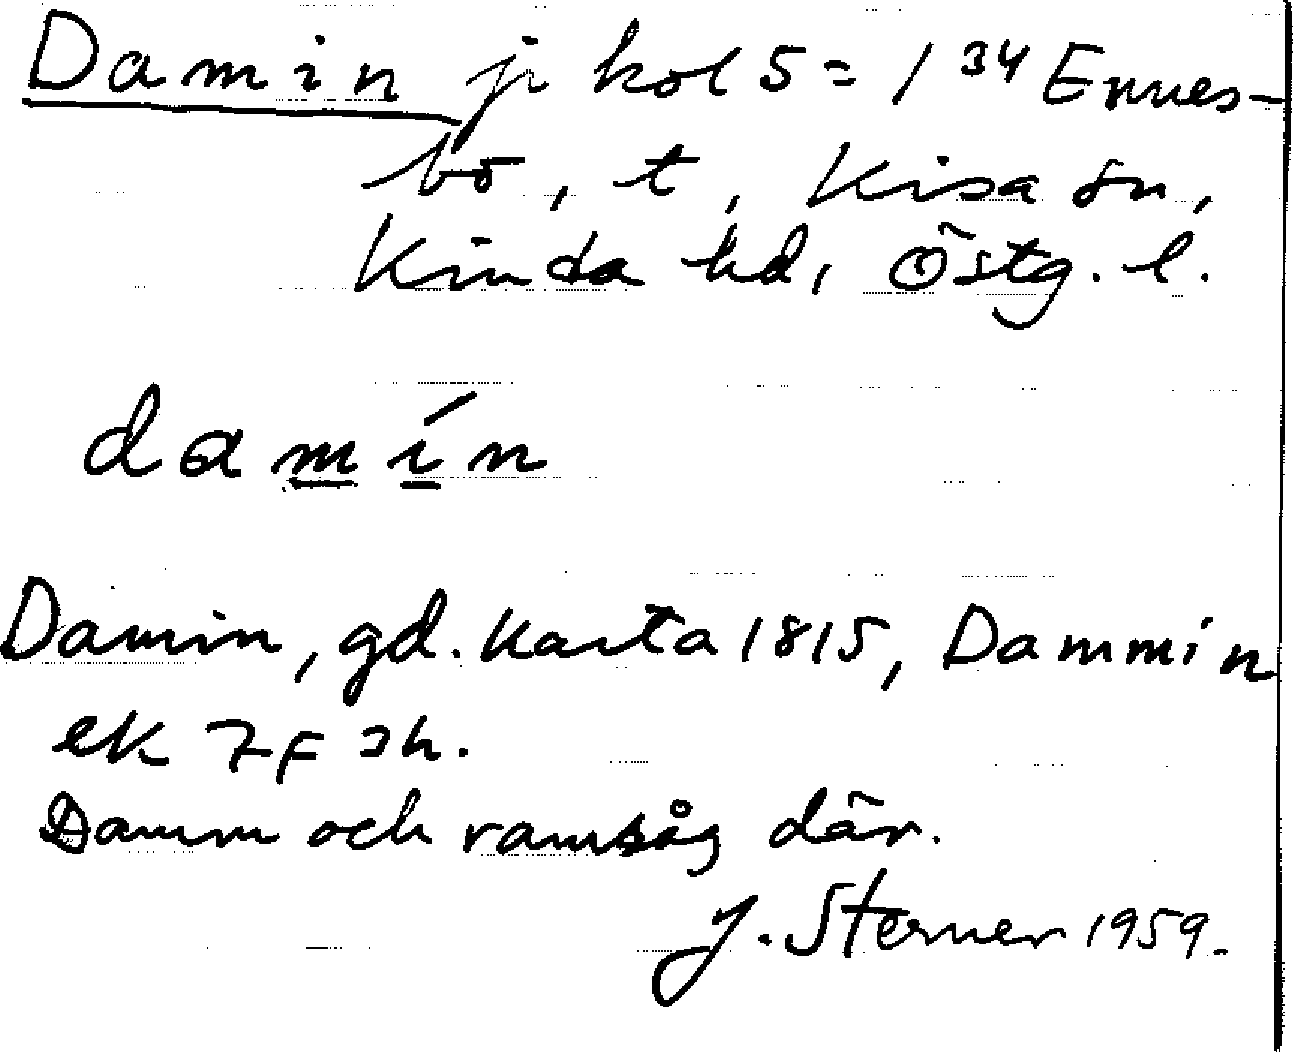 Damin jr kol 5 = 1 34 Ennes-
bo, t, Kisa sn,
Kinda hd, Östg. l.
damín
Damin, gd. karta 1815, Dammin
ek 7F sh.
Damm och ramsåg där.
J. Sterner 1959.